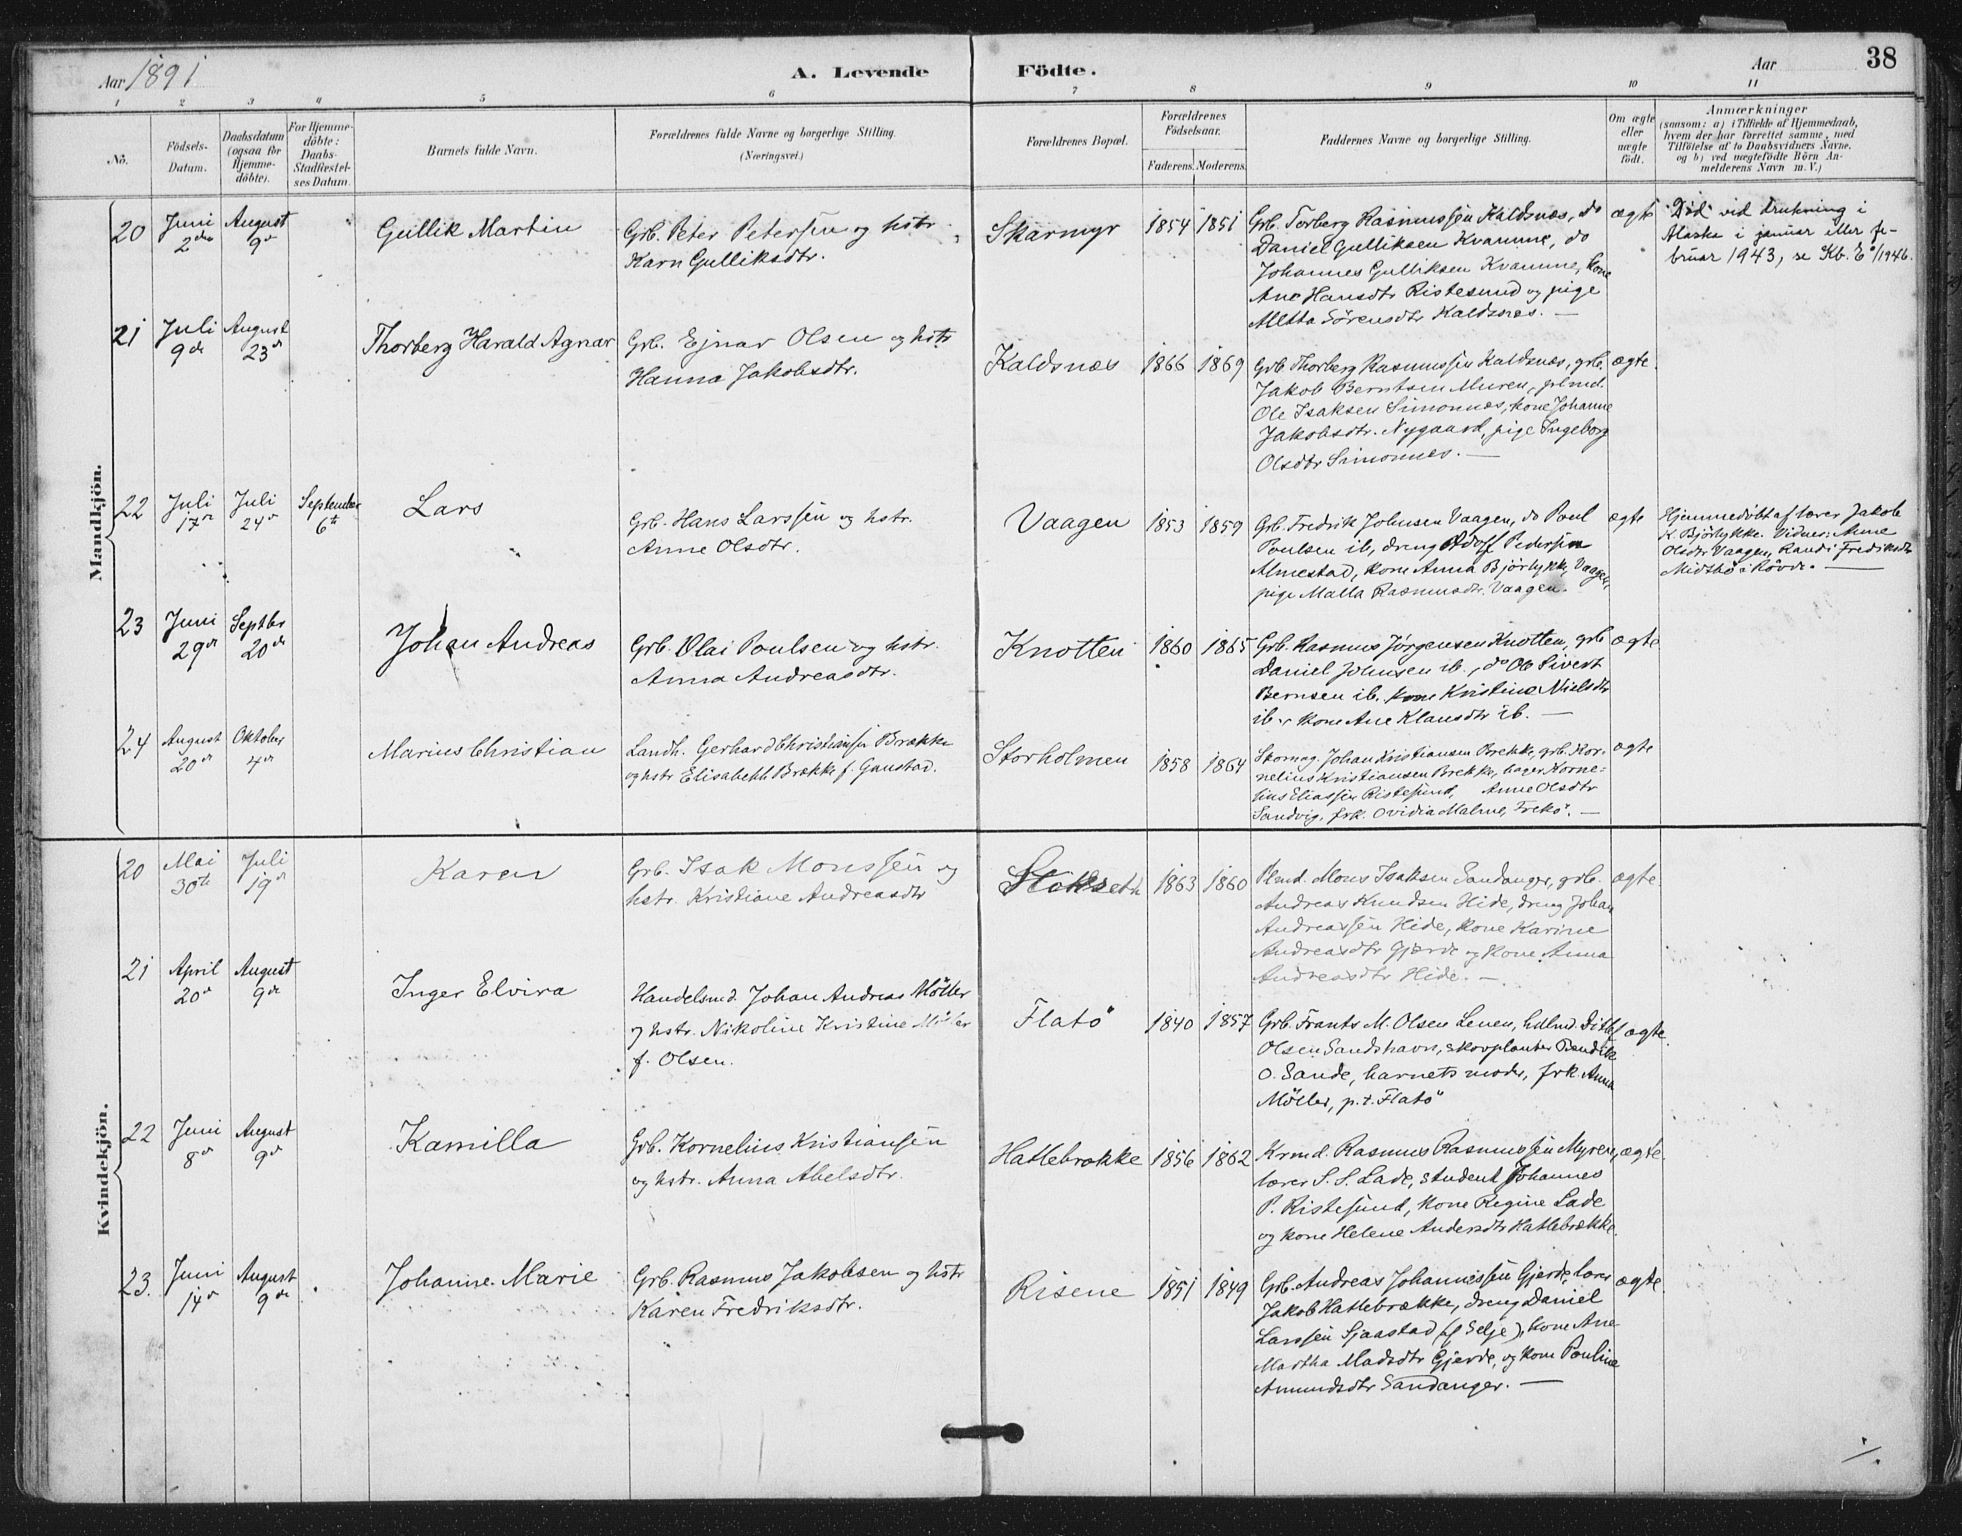 Aar 1891
A. Levende
Födte.
Aar
38
1 2 3 4 5 6 7 8 9 10 11
No.
Födsels-
Datum.
Daabsdatum
(ogsaa for
Hjemme-
döbte).
For Hjemme-
döbte:
Daabs-
Stadfæstel-
ses Datum
Barnets fulde Navn.
Forældrenes fulde Navne og borgerlige Stilling.
(Næringsvei.)
Forældrenes Bopæl.
Forældrenes
Födselsaar.
Faderens. Moderens.
Faddernes Navne og borgerlige Stilling.
Om ægte
eller
uægte
födt.
Anmærkninger
(saasom: a) i Tilfælde af Hjemmedaab,
hvem der har forrettet samme, med
Tilföielse af to Daabsvidners Navne.
og b) ved uægtefödte Börn An-
melderens Navn m. V.)
Mandkjön.
20
Juni
2den
August
9de
Gullik Martin
Grb. Peter Petersen og hstr.
Karn Gulliksdtr.
Skarmyr
1854 1851
Grb. Torberg Rasmussen Kaldsnæs, do
Daniel Gulliksen Kvamme, do
Johannes Gulliksen Kvamme, kone
Ane Hansdtr Ristesund og pige
Sörensdtr Kaldsnæs. —
ægte
"Död" ved drukning i
Alaska i januar eller fe-
bruar 1943, se Kb. E /1946.
21
Juli
9de
August
23de
Thorberg Harald Agnar
Grb. Ejnar Olsen og hstr
Hanna Jakobsdtr.
Kaldsnæs
1866 1869
Grb Thorberg Rasmussen Kaldsnæs, grb.
Jakob Berntsen Muren, plmd.
Ole Isaksen Simonnæs, kone Johanne
Jakobsdtr. Nygaard, pige Ingeborg
Olsdtr Simonnæs. —
ægte.
22
Juli
17de
Juli
24de
September
6te
Lars
Grb. Hans Larssen og hstr.
Anne Olsdtr.
Vaagen
1853 1859
Grb. Fredrik Johnsen Vaagen, do Poul
Poulsen ib, dreng Adolf Pedersen
Almestad, kone Anna Bjørlykke, Vaagen,
pige Malla Rasmusdtr. Vaagen.
ægte
Hjemmedöbt af lærer Jakob
K. Bjørlykke. Vidner: Anne
Olsdtr Vaagen, Randi Fredriksdtr
Midtbö i Rövde. —
23
Juni
29de
Septbr
20de
Johan Andreas
Grb. Olai Poulsen og hstr.
Anna Andreasdtr.
Knotten
1860 1865
Grb. Rasmus Jørgensen Knotten, grb
Daniel Johnsen ib., do Ole Sivert
Bernsen ib. kone Kristine Nielsdtr
ib., kone Ane Klausdtr ib. —
ægte
24
August
20de
Oktober
4de
Marius Christian
Landh. Gerhard Christiansen Brække
og hstr Elisabeth Brække f. Gunstad.
Storholmen
1858 1864
Skomag. Johan Kristiansen Brekke, grb. Kor-
nelius Kristiansen Brekke, bager Korne-
lius Eliassen Ristesund, Anne Olsdtr
Sandvig, frk. Ovidia Malme, Frekö. —
ægte
Kvindekjön.
20
Mai
30te
Juli
19de
Karen
Grb. Isak Monssen og
hstr. Kristiane Andreasdtr
Stokseth
1863 1860
Plmd. Mons Isaksen Sandanger, grb.
Andreas Knudsen Hide, dreng Johan
Andreassen Hide, kone Karine
Andreasdtr Gjærde og kone Anna
Andreasdtr Hide. —
ægte.
21
April
20de
August
9de
Inger Elvira
Handelsmd. Johan Andreas Möller
og hstr. Nikoline Kristine Möller
f. Olsen.
Flatö
1840 1857
Grb. Frants M. Olsen Lenen, hdlmd. Ditlef
Olsen Sandshavn, skovplanter Bendik
O. Sande, barnets moder, frk. Anna
Möller, p.t. Flatö
ægte.
22
Juni
8de
August
9de
Kamilla
Grb. Kornelius Kristiansen
og hstr. Anna Abelsdtr.
Hatlebrække
1856 1862
Krmd. Rasmus Rasmussen Myren,
lærer S. S. Lade, student Johannes
P. Ristesund, kone Regine Lade
og kone Helene Andersdtr Hatlebrække.
ægte.
23.
Juni
14de
August
9de
Johanne Marie
Grb. Rasmus Jakobsen og hstr
Karen Fredriksdtr.
Risene
1851 1849
Grb. Andreas Johannessen Gjerde, lærer
Jakob Hatlebrække, dreng Daniel
Larssen Sjaastad (af Selje), kone Ane
Martha Madsdtr Gjerde, og kone Pauline
Amundsdtr Sandanger. —
ægte.